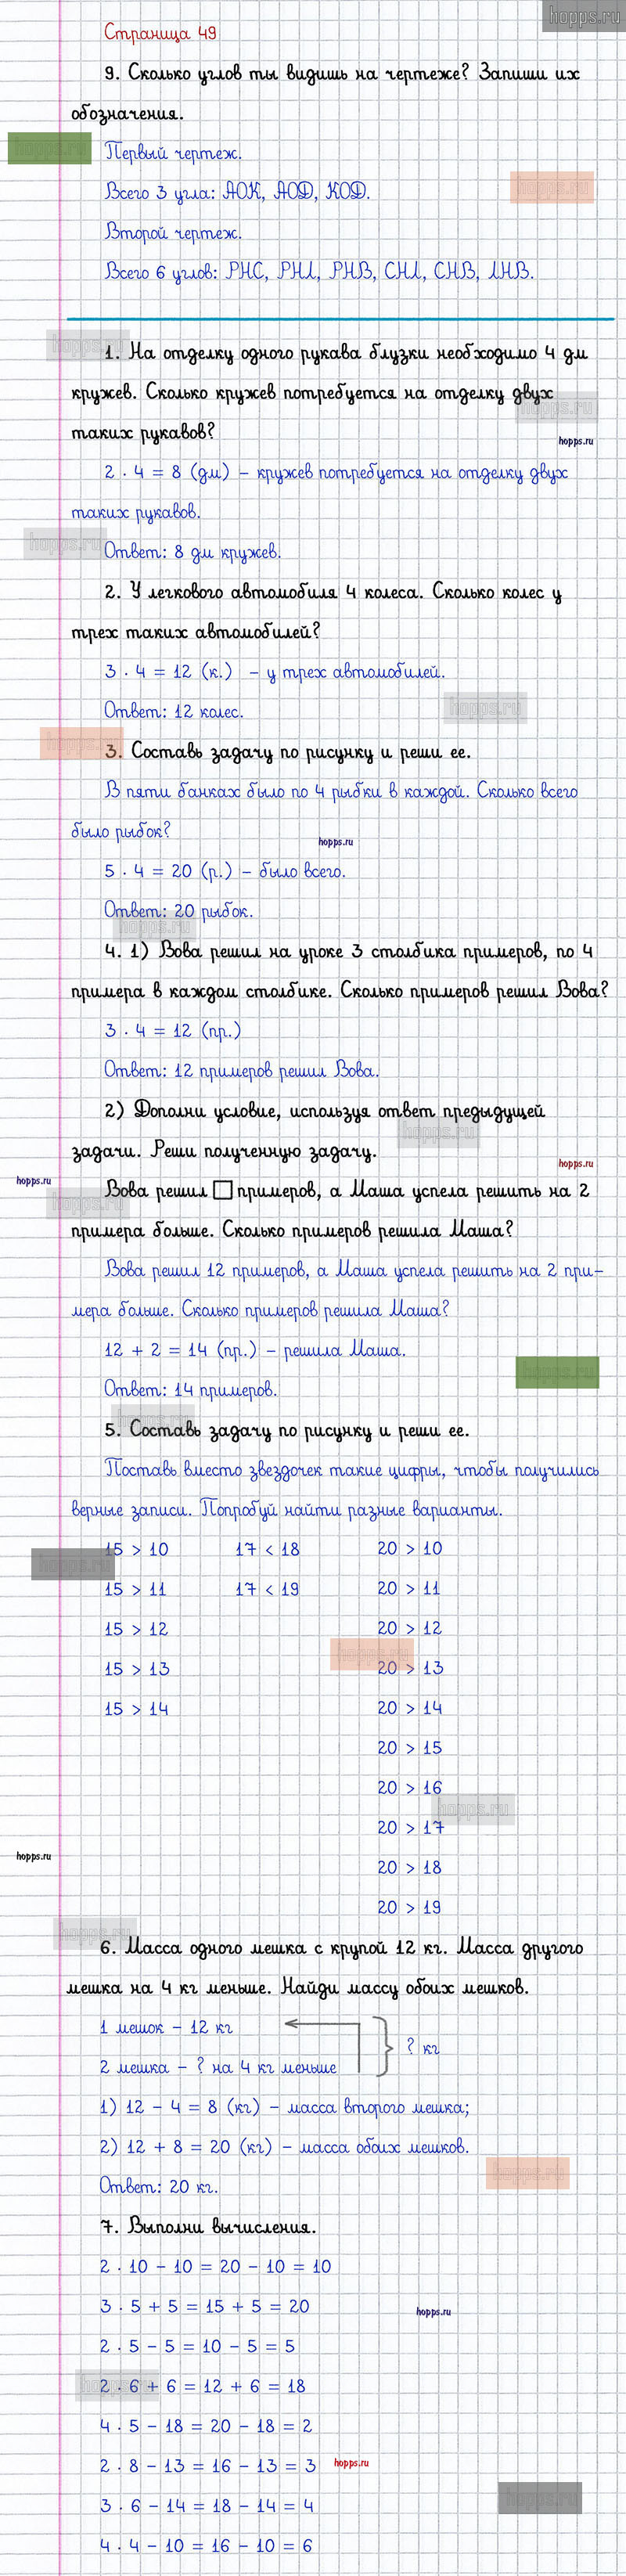 hopps.ru
Страница 49
9. Сколько углов ты видишь на чертеже? Запиши их
обозначения.
hopps.ru
Первый чертеж.
Всего 3 угла: АОК, АОД, КОД.
hopps.ru
Второй чертеж.
Всего 6 углов: РНС, РНЛ, РНВ, СНЛ, СНВ, ЛНВ.
hopps.ru
1. На отделку одного рукава блузки необходимо 4 дм
кружев. Сколько кружев потребуется на отделку двух
hopps.ru
таких рукавов?
hopps.ru
2 · 4 = 8 (дм) – кружев потребуется на отделку двух
таких рукавов.
hopps.ru
Ответ: 8 дм кружев.
2. У легкового автомобиля 4 колеса. Сколько колес у
трех таких автомобилей?
3 · 4 = 12 (к.) – у трех автомобилей.
Ответ: 12 колес.
hopps.ru
hopps.ru
3. Составь задачу по рисунку и реши ее.
В пяти банках было по 4 рыбки в каждой. Сколько всего
было рыбок?
hopps.ru
5 · 4 = 20 (р.) – было всего.
Ответ: 20 рыбок.
hopps.ru
4. 1) Вова решил на уроке 3 столбика примеров, по 4
примера в каждом столбике. Сколько примеров решил Вова?
3 · 4 = 12 (пр.)
Ответ: 12 примеров решил Вова.
2) Дополни условие, используя ответ предыдущей
hopps.ru
задачи. Реши полученную задачу.
hopps.ru
hopps.ru
Вова решил □ примеров, а Маша успела решить на 2
hopps.ru
примера больше. Сколько примеров решила Маша?
Вова решил 12 примеров, а Маша успела решить на 2 при–
мера больше. Сколько примеров решила Маша?
12 + 2 = 14 (пр.) – решила Маша.
hopps.ru
Ответ: 14 примеров.
hopps.ru
5. Составь задачу по рисунку и реши ее.
Поставь вместо звездочек такие цифры, чтобы получились
верные записи. Попробуй найти разные варианты.
15 > 10 17 < 18 20 > 10
hopps.ru
15 > 11 17 < 19 20 > 11
15 > 12 20 > 12
hopps.ru
15 > 13 20 > 13
15 > 14 20 > 14
20 > 15
20 > 16
hopps.ru
20 > 17
hopps.ru
20 > 18
20 > 19
hopps.ru
6. Масса одного мешка с крупой 12 кг. Масса другого
мешка на 4 кг меньше. Найди массу обоих мешков.
1 мешок – 12 кг
? кг
2 мешка – ? на 4 кг меньше
1) 12 – 4 = 8 (кг) – масса второго мешка;
2) 12 + 8 = 20 (кг) – масса обоих мешков.
hopps.ru
Ответ: 20 кг.
7. Выполни вычисления.
2 · 10 – 10 = 20 – 10 = 10
3 · 5 + 5 = 15 + 5 = 20
hopps.ru
2 · 5 – 5 = 10 – 5 = 5
hopps.ru
2 · 6 + 6 = 12 + 6 = 18
4 · 5 – 18 = 20 – 18 = 2
2 · 8 – 13 = 16 – 13 = 3
hopps.ru
hopps.ru
3 · 6 – 14 = 18 – 14 = 4
4 · 4 – 10 = 16 – 10 = 6